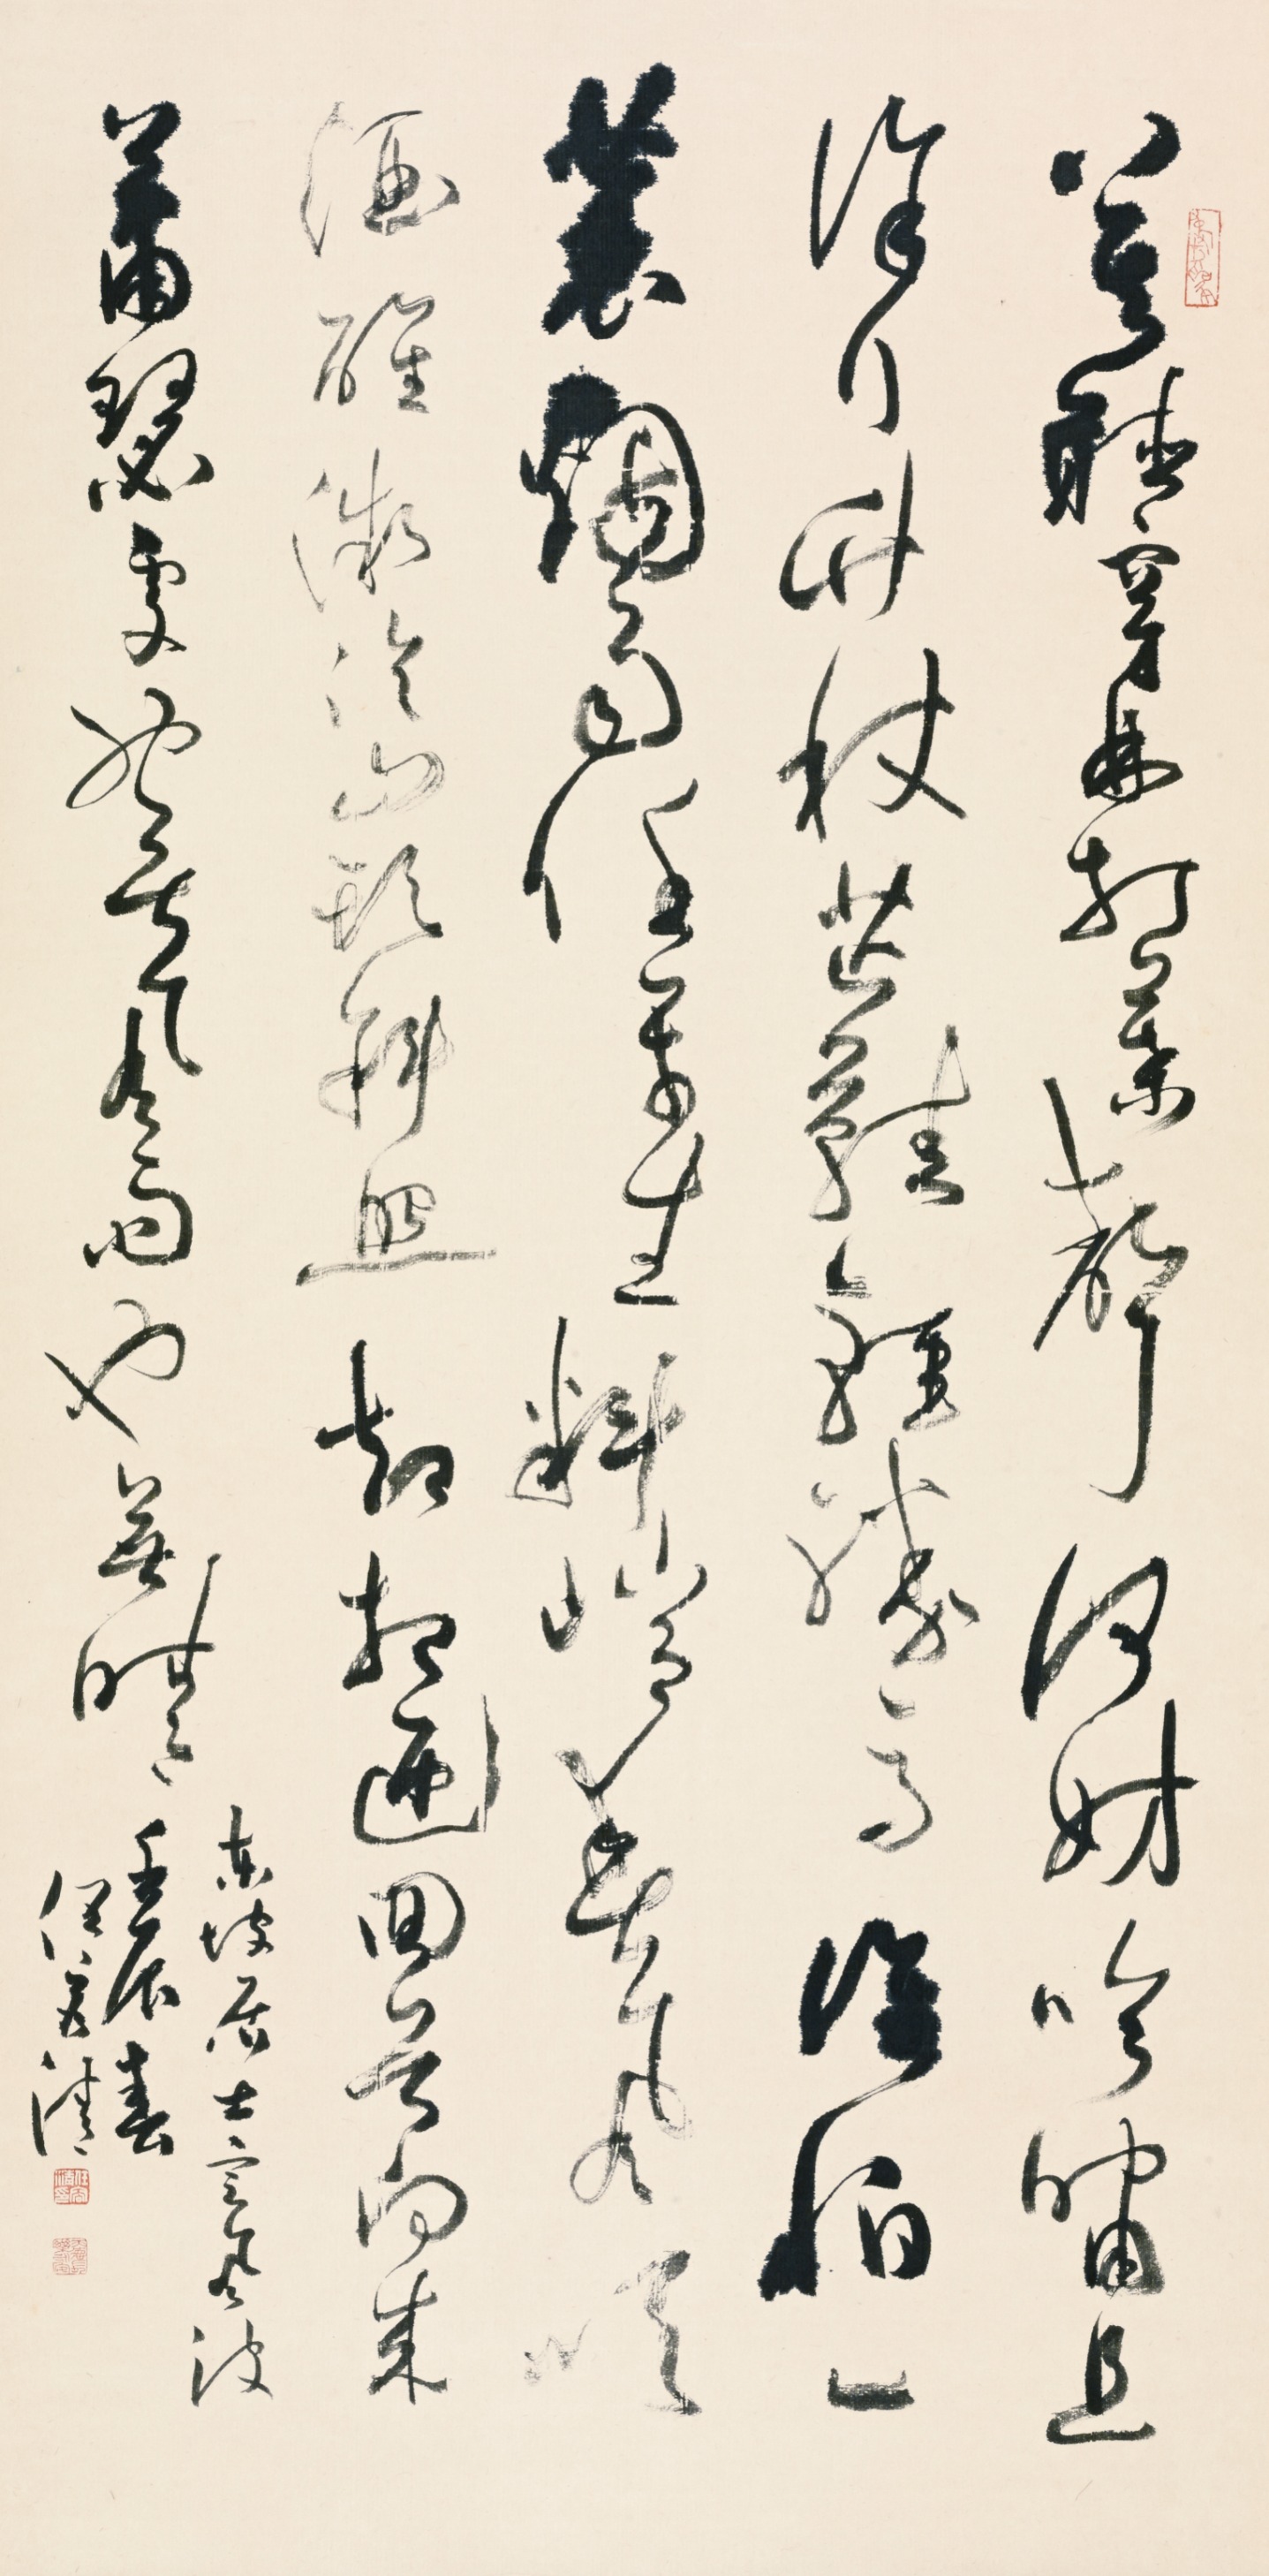 莫聽穿林打葉聲何妨吟嘯且
徐行竹杖芒鞋輕勝馬誰怕一
蓑烟雨任平生料峭春風吹
酒醒微冷山頭斜照却相迎回首向來
蕭瑟處歸去風雨也無晴
東坡居士定風波
壬辰春
任容清